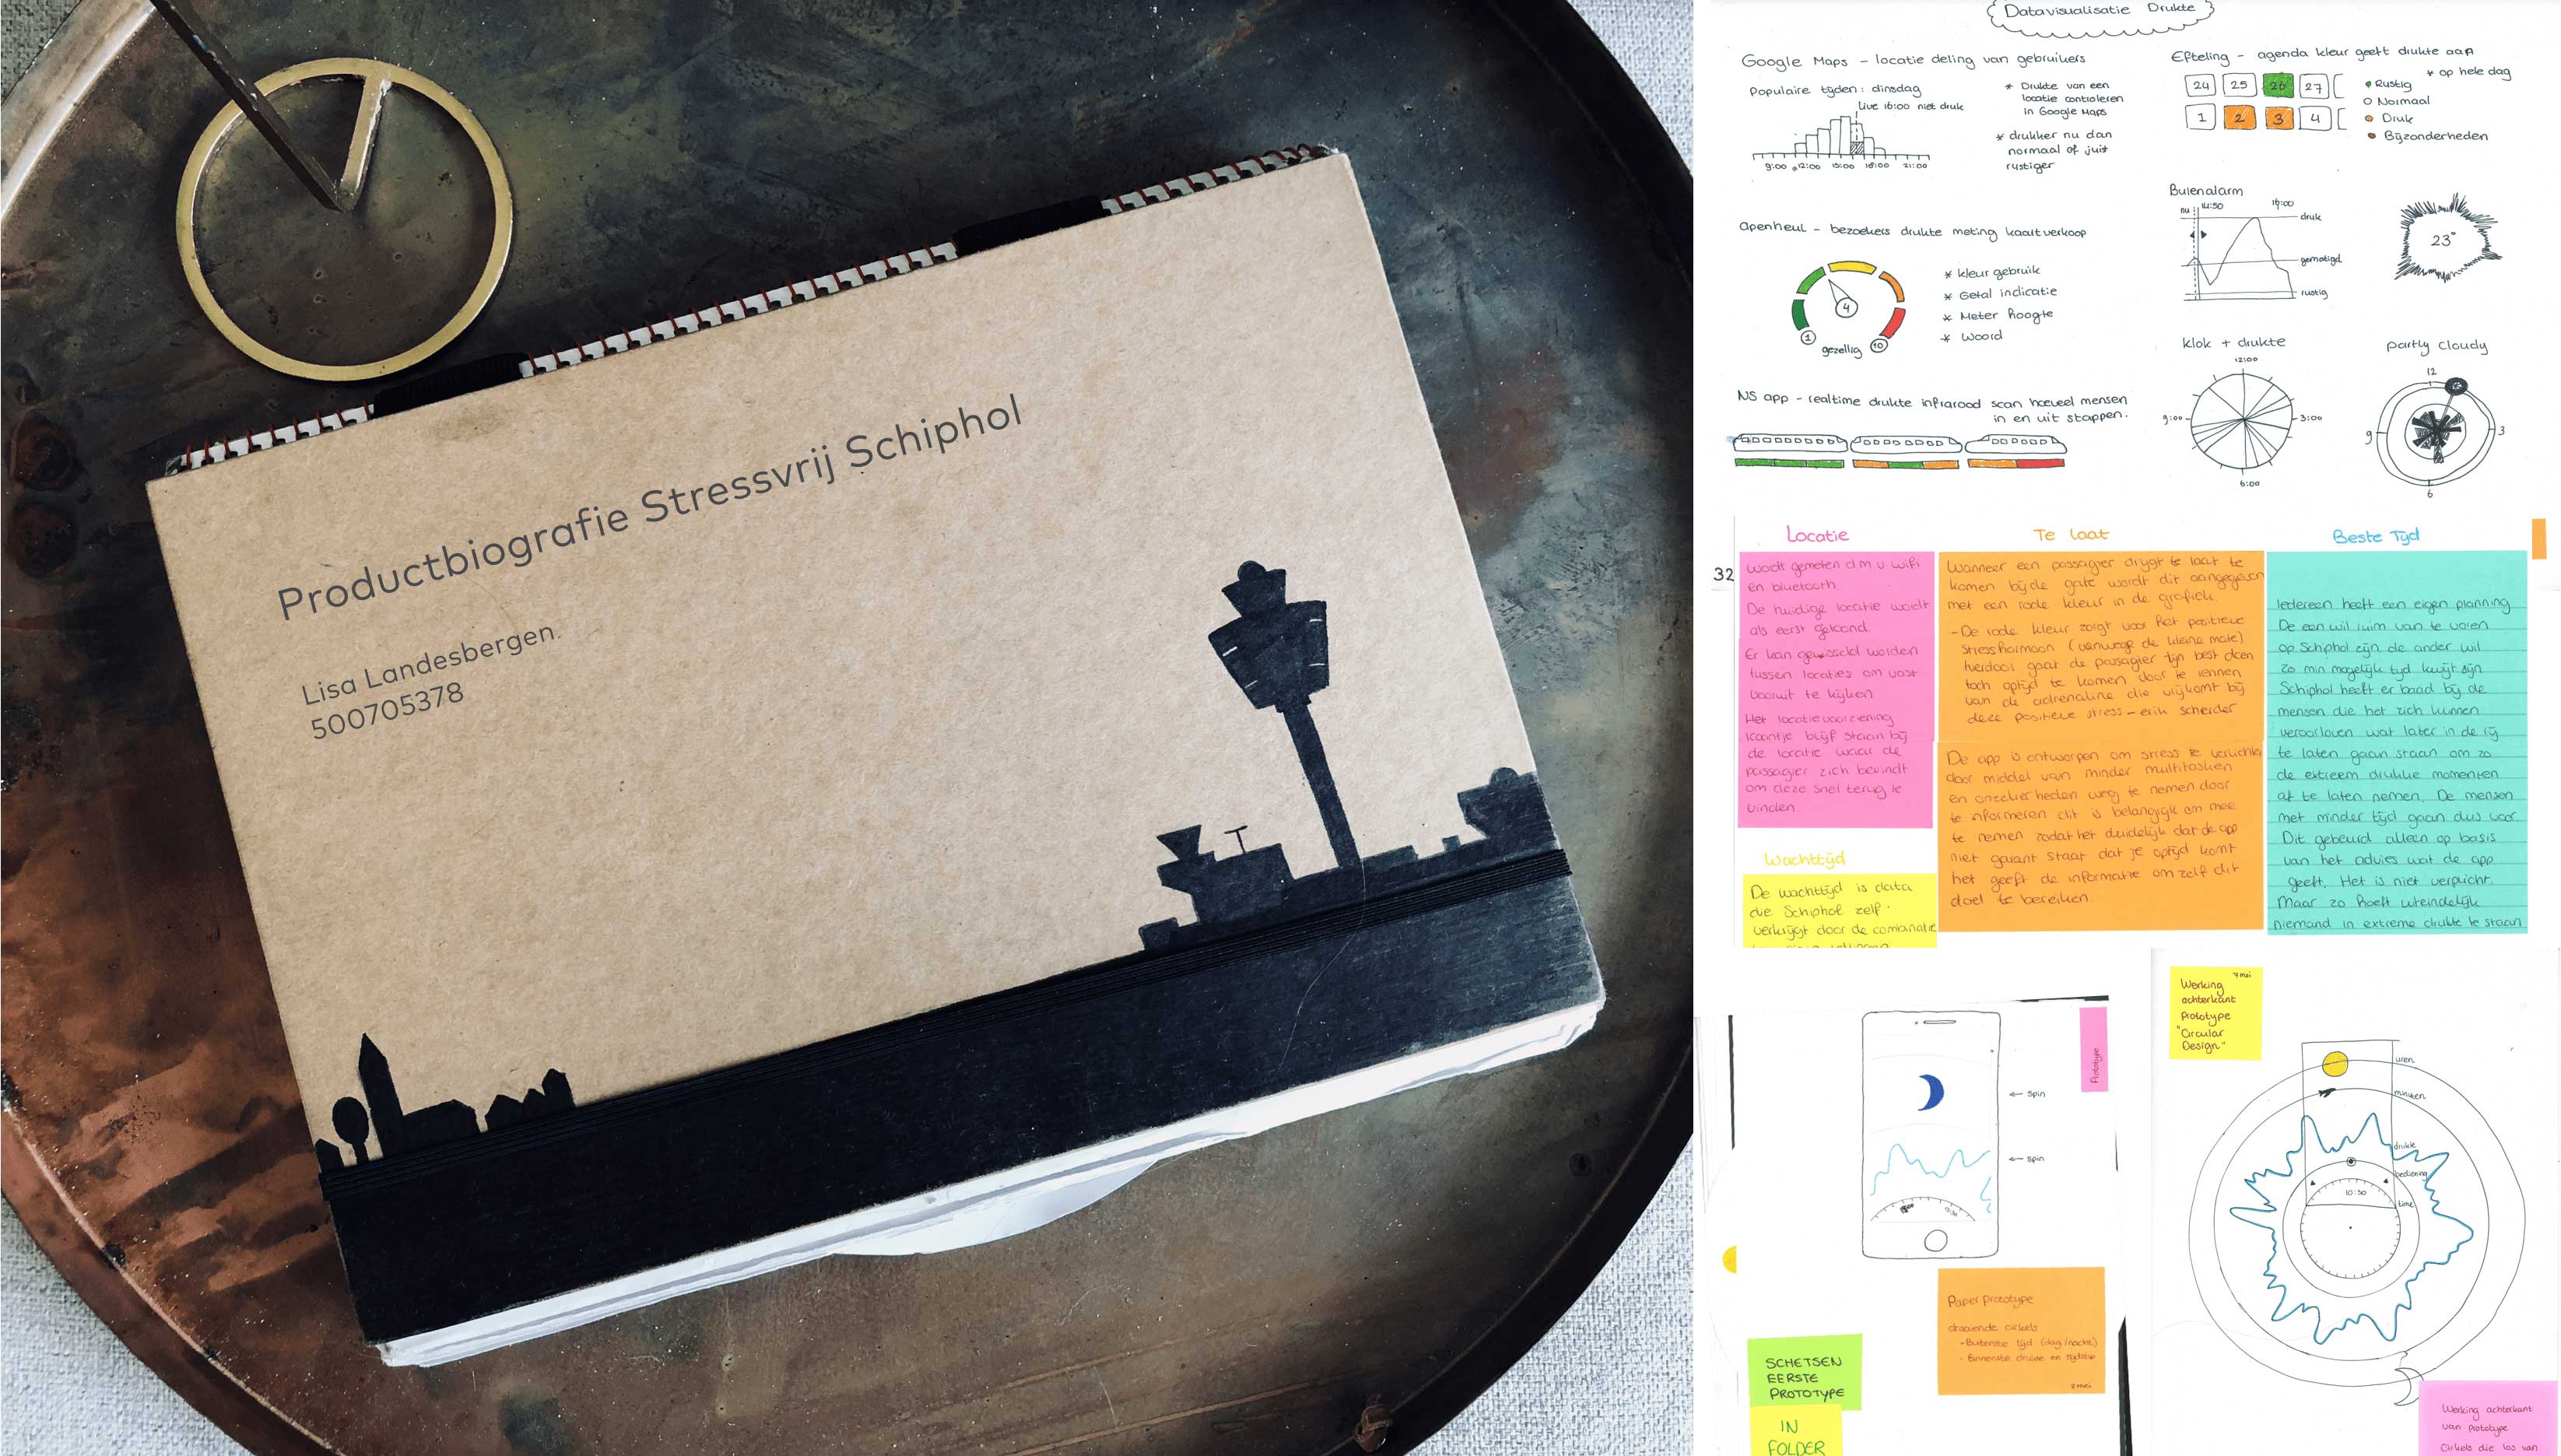 Productbiografie Stressvrij Schiphol
Lisa Landesbergen.
500705378
Datavisualisatie Drukte
Google Maps - locatie deling van gebruikers
Populaire tijden: dinsdag
Live 16:00 niet druk
9:00 12:00 15:00 18:00 21:00
* Drukte van een
locatie controleren
in Google Maps
* drukker nu dan
normaal of juist
rustiger
Efteling - agenda kleur geeft drukte aan
* op hele dag
24 25 26 27
1 2 3 4
Rustig
Normaal
Druk
Bijzonderheden
Apenheul - bezoekers drukte meting kaartverkoop
4
1
10
gezellig
* kleur gebruik
* Getal indicatie
* Meter hoogte
* Woord
Buienalarm
nu 14:50
druk
gematigd
rustig
23°
NS app - realtime drukte infrarood scan hoeveel mensen
in en uit stappen.
klok + drukte
12:00
9:00
3:00
6:00
partly cloudy
12
9
3
6
32
Locatie
wordt gemeten d.m.v wifi
en bluetooth.
De huidige locatie wordt
als eerst getoond.
Er kan gewisseld worden
tussen locaties om vast
vooruit te kijken
Het locatievoorziening
icoontje blijf staan bij
de locatie waar de
passagier zich bevindt
om deze snel terug te
vinden.
Wachttijd
De wachttijd is data
die Schiphol zelf
verkrijgt door de combinatie
Te laat
Wanneer een passagier dreigt te laat te
komen bij de gate wordt dit aangegeven
met een rode kleur in de grafiek.
- De rode kleur zorgt voor het positieve
stresshormoon (vanwege de kleine mate)
hierdoor gaat de passagier zijn best doen
toch optijd te komen door te rennen
van de adrenaline die vrijkomt bij
deze positieve stress - erik scherder
De app is ontworpen om stress te verlichten
door middel van minder multitasken
en onzekerheden weg te nemen door
te informeren dit is belangrijk om mee
te nemen zodat het duidelijk dat de app
niet garant staat dat je optijd komt
het geeft de informatie om zelf dit
doel te bereiken.
Beste Tijd
Iedereen heeft een eigen planning
De een wil ruim van te voren
op Schiphol zijn de ander wil
zo min mogelijk tijd kwijt zijn
Schiphol heeft er baad bij de
mensen die het zich kunnen
veroorloven wat later in de rij
te laten gaan staan om zo
de extreem drukke momenten
af te laten nemen. De mensen
met minder tijd gaan dus voor.
Dit gebeurd alleen op basis
van het advies wat de app
geeft. Het is niet verplicht.
Maar zo hoeft uiteindelijk
niemand in extreme drukte te staan
Prototype
← Spin
← Spin
Paper prototype
draaiende cirkels
- Buitenste tijd (dag/nacht)
- Binnenste drukte en tijdstip
7 mei
SCHETSEN
EERSTE
PROTOTYPE
IN
FOLDER
7 mei
Werking
achterkant
prototype
"Circular
Design"
uren
minuten
drukte
bediening
10:30
time
Werking achterkant
van prototype
Cirkels die los van